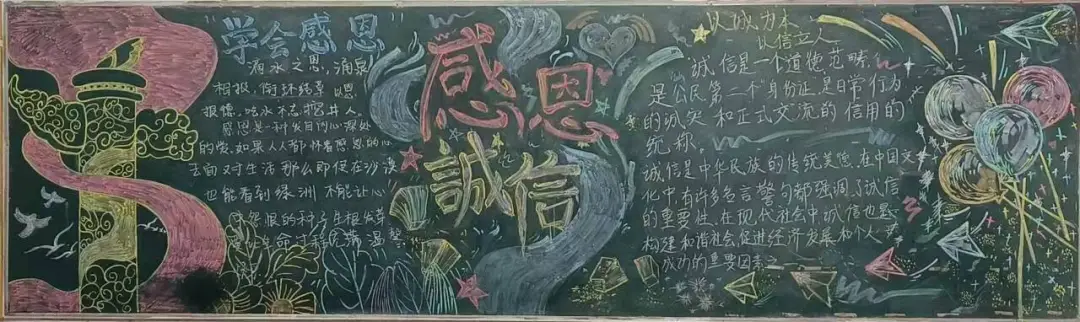 学会感恩
滴水之恩,涌泉
相报,衔环结草,以恩
报德,吃水不忘挖井人。
感恩是一种发自内心深处
的 如果人人都怀着感恩的心
去面对生活那么即使在沙漠
也能看到绿洲 不能让心
怨恨的种子在
生命过程充满温馨
感恩
誠信
以诚为本
以信立人
"诚信是一个道德范畴,
是公民第二个"身份证"是日常行为
的诚实 和正式交流的信用的
统称,
诚信是中华民族的传统美德,在中国文
化中,有许多名言警句都强调了诚信
的重要性,在现代社会中诚信也是
构建和谐社会,促进经济发展和个人
成功的重要因素之